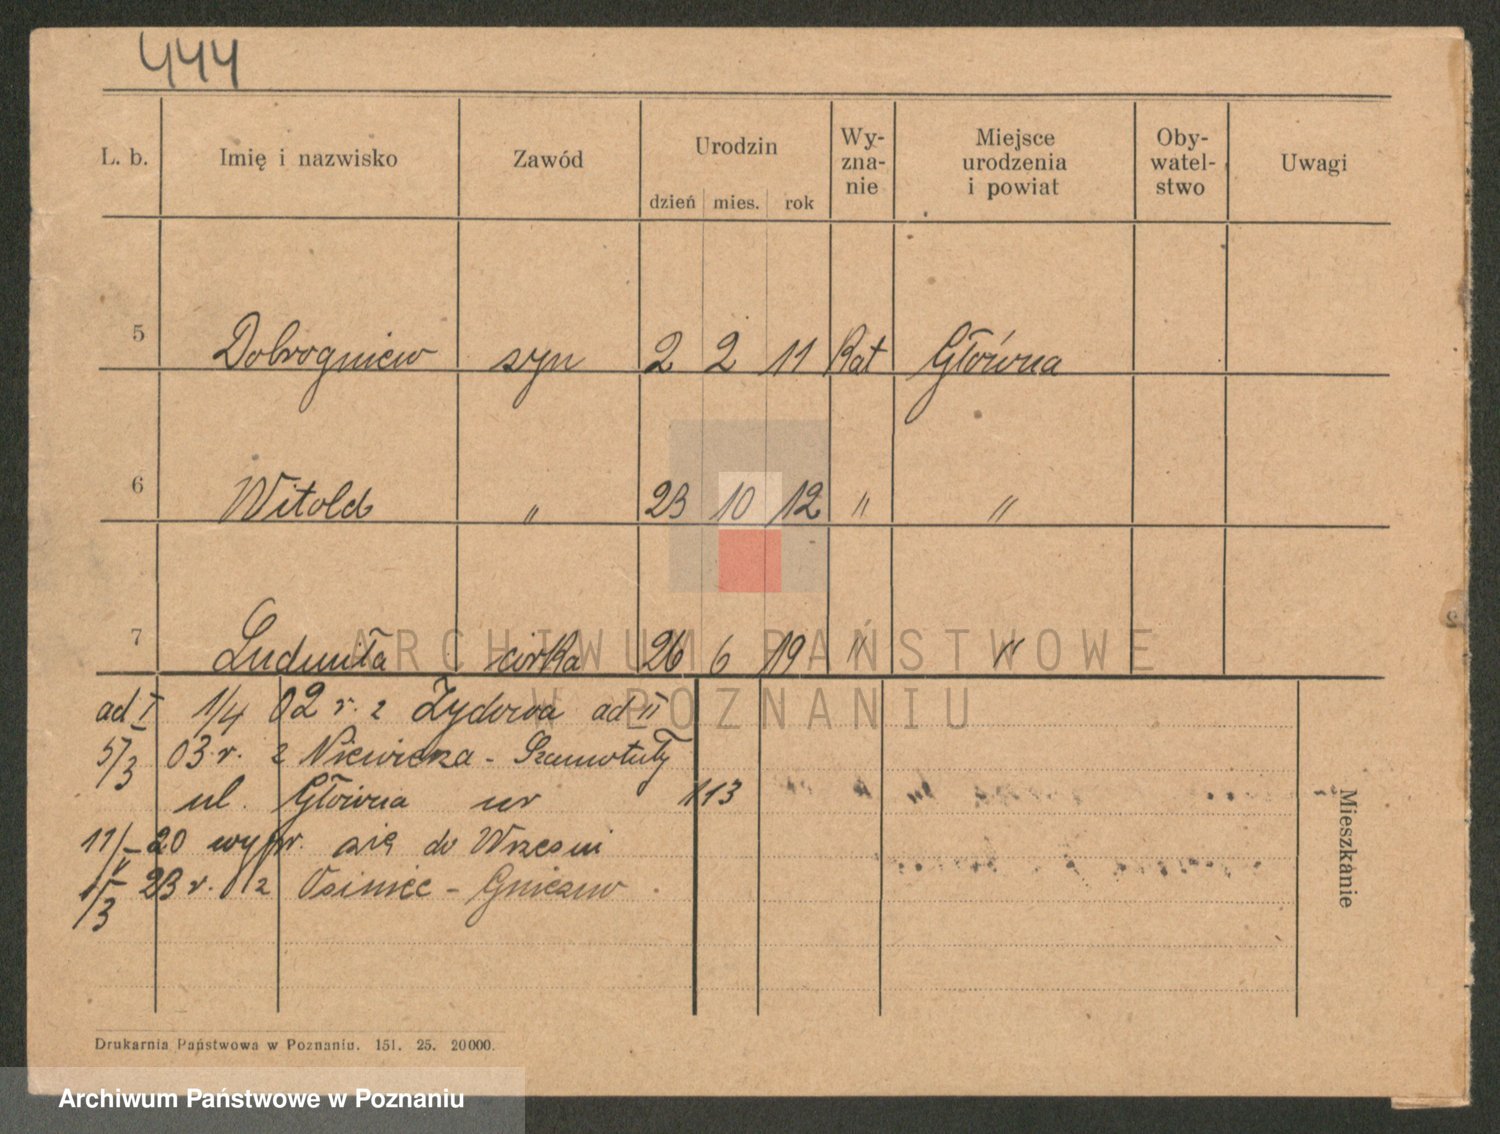 444
L. b. Imię i nazwisko Zawód Urodzin dzień mies. rok Wy-zna-nie Miejsce urodzenia i powiat Oby-watel-stwo Uwagi
5 Dobrogniew syn 2 2 11 Kat Główna
6 Witold " 23 10 12 " "
7 Ludmiła córka 26 6 19 " "
ad I 1/4 02 r. z Żydowa ad II
5/3 03 r. z - Szamotuły
ul. Główna nr 113
11/V 20 wypr. się do Wrześni
23 r. z Osiniec - Gniezno
Mieszkanie
Drukarnia Państwowa w Poznaniu. 151. 25. 20000.
ARCHIWUM PAŃSTWOWE
W POZNANIU
Archiwum Państwowe w Poznaniu